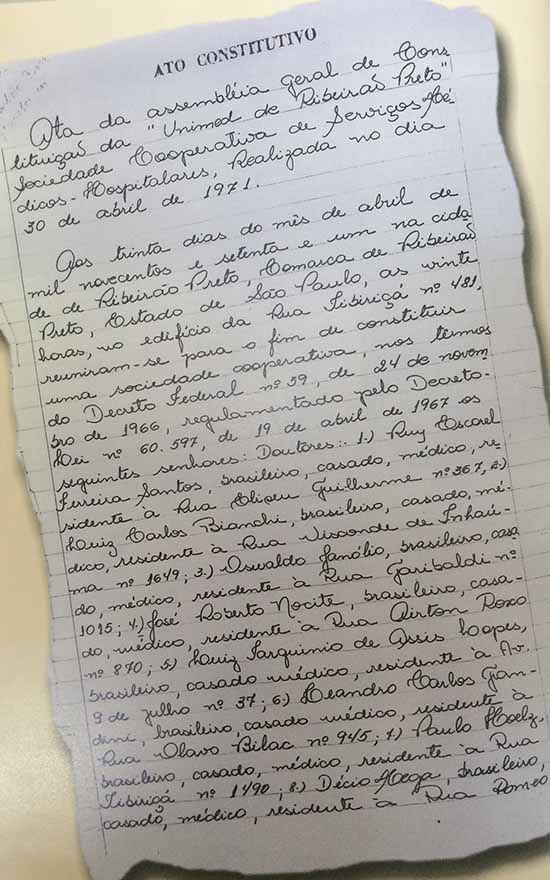 ATO CONSTITUTIVO
Ata da assembléia geral de Cons
tituição da "Unimed de Ribeirão Preto"
Sociedade Cooperativa de Serviços Mé
dicos-Hospitalares, Realizada no dia
30 de abril de 1971.
Aos trinta dias do mês de abril de
mil novecentos e setenta e um na cida
de de Ribeirão Preto, Comarca de Ribeirão
Preto, Estado de São Paulo, as vinte
horas, no edifício da Rua Tibiriçá nº 481,
reuniram-se para o fim de constituir
uma sociedade cooperativa, nos termos
do Decreto Federal nº 59, de 24 de novem
bro de 1966, regulamentado pelo Decreto-
Lei nº 60.597, de 19 de abril de 1967 os
seguintes senhores: Doutores:. 1.) Ruy Escorel
Ferreira Santos, brasileiro, casado, médico, re
sidente à Rua Eliseu Guilherme nº 367, 2.)
Luiz Carlos Bianchi, brasileiro, casado, mé-
dico, residente à Rua Visconde de Inhaú-
ma nº 1649; 3.) Oswaldo brasileiro, casa
do, médico, residente à Rua Garibaldi nº
1015; 4.) José Roberto Nocite, brasileiro, casa-
do, médico, residente à Rua Airton Roxo
nº 870; 5) Luiz Tarquinio de Assis Lopes,
brasileiro, casado médico, residente à Av.
9 de julho nº 37; 6) Leandro Carlos
brasileiro, casado médico, residente à
Rua Olavo Bilac nº 945; 7.) Paulo
brasileiro, casado, médico, residente à Rua
Tibiriçá nº 1490; 8.) Décio brasileiro,
casado, médico, residente à Rua Romeo